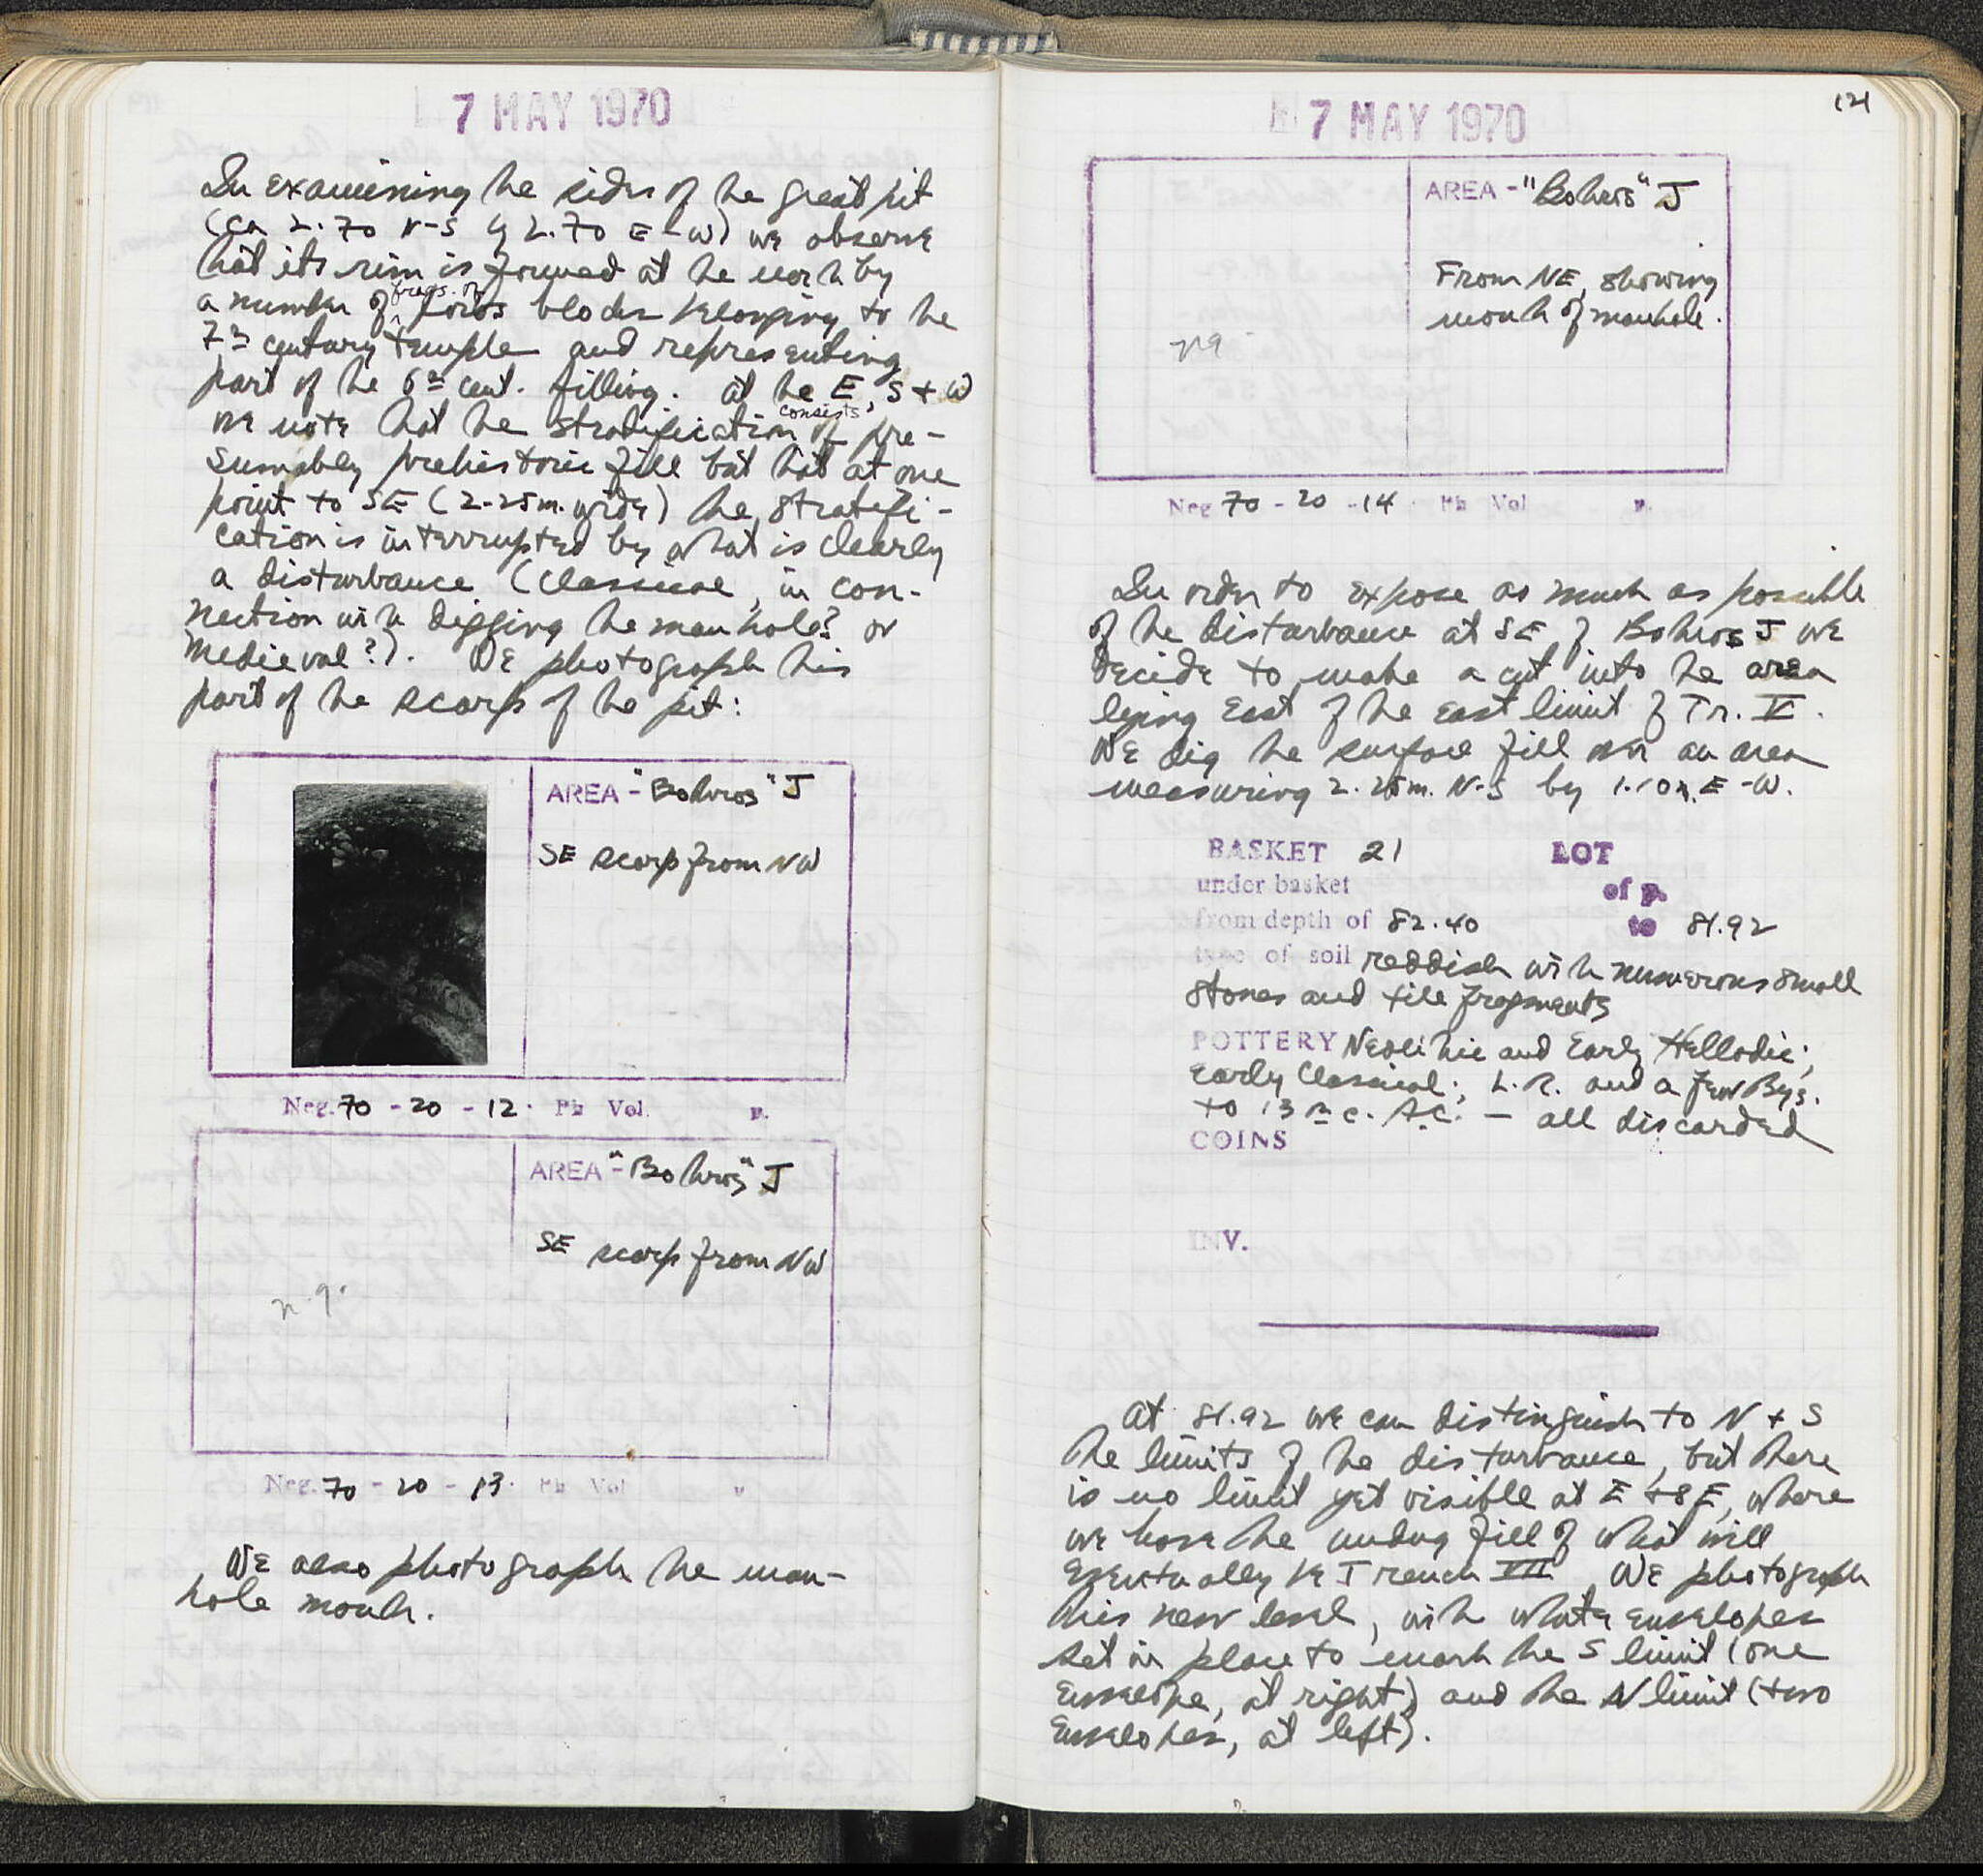 7 MAY 1970
In examining the sides of the great pit
(ca 2.70 N-S by 2.70 E-W) we observe
that its rim is formed at the north by
a number of frags. of poros blocks belonging to the
7th century temple and representing
part of the 6th cent. filling. At the E, S + W
we note that the stratification consists of pre-
sumably prehistoric fill but that at one
point to SE (2.25m. wide) the stratifi-
cation is interrupted by what is clearly
a disturbance (Classical, in con-
nection with digging the manhole? or
Medieval?). We photograph this
part of the scarp of the pit:
AREA - "Bothros" J
SE scarp from NW
Neg. 70 - 20 - 12. Ph Vol. p.
AREA - "Bothros" J
SE scarp from NW
n.g.
Neg. 70 - 20 - 13. Ph Vol p
We also photograph the man-
hole mouth.
121
7 MAY 1970
AREA - "Bothros" J
From NE, showing
mouth of manhole.
ng
Neg 70 - 20 - 14. Ph Vol p.
In order to expose as much as possible
of the disturbance at SE of Bothros J we
decide to make a cut into the area
lying East of the east limit of Tr. V.
We dig the surface fill over an area
measuring 2.25m. N-S by 1.10m. E-W.
BASKET 21 LOT
under basket of p.
from depth of 82.40 to 81.92
type of soil reddish with numerous small
stones and tile fragments
POTTERY Neolithic and Early Helladic;
Early Classical; L.R. and a few Byz.
to 13th c. A.C. — all discarded
COINS
INV.
At 81.92 we can distinguish to N + S
the limits of the disturbance, but there
is no limit yet visible at E + SE, where
we have the undug fill of what will
eventually be Trench VII We photograph
this new level, with white envelopes
set in place to mark the S limit (one
envelope, at right) and the N limit (two
envelopes, at left).